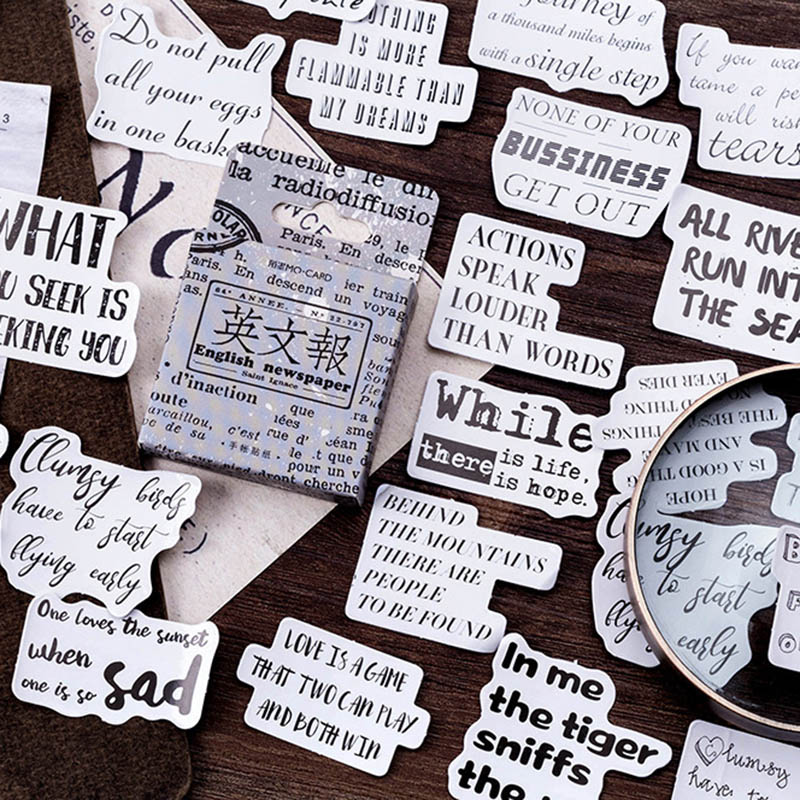 Do not pull
all your eggs
in one bask
NOTHING
IS MORE
FLAMMABLE THAN
MY DREAMS
journey of
a thousand miles begins
with a single step
If you wan
tame a pe
will risk
tears
NONE OF YOUR
BUSSINESS
GET OUT
WHAT
U SEEK IS
EKING YOU
accueille le dif
la radiodiffusio
Paris. En
descen
ACTIONS
SPEAK
LOUDER
THAN WORDS
ALL RIVE
RUN INT
THE SEA
MO·CARD
64e ANNEE.
No 22.797
英文報
English newspaper
Saint Ignace
d'inaction que
手帐贴纸
pour un v
dront cherche
While
there is life,
is hope.
HOPE
IS A GOOD THING
AND MAYBE
THE BEST
NO GOOD THING
EVER DIES
Clumsy birds
have to start
flying early
BEHIND
THE MOUNTAINS
THERE ARE
PEOPLE
TO BE FOUND
Clumsy birds
to start
early
One loves the sunset
when
one is so sad
LOVE IS A GAME
THAT TWO CAN PLAY
AND BOTH WIN
In me
the tiger
sniffs
the
Clumsy
have to